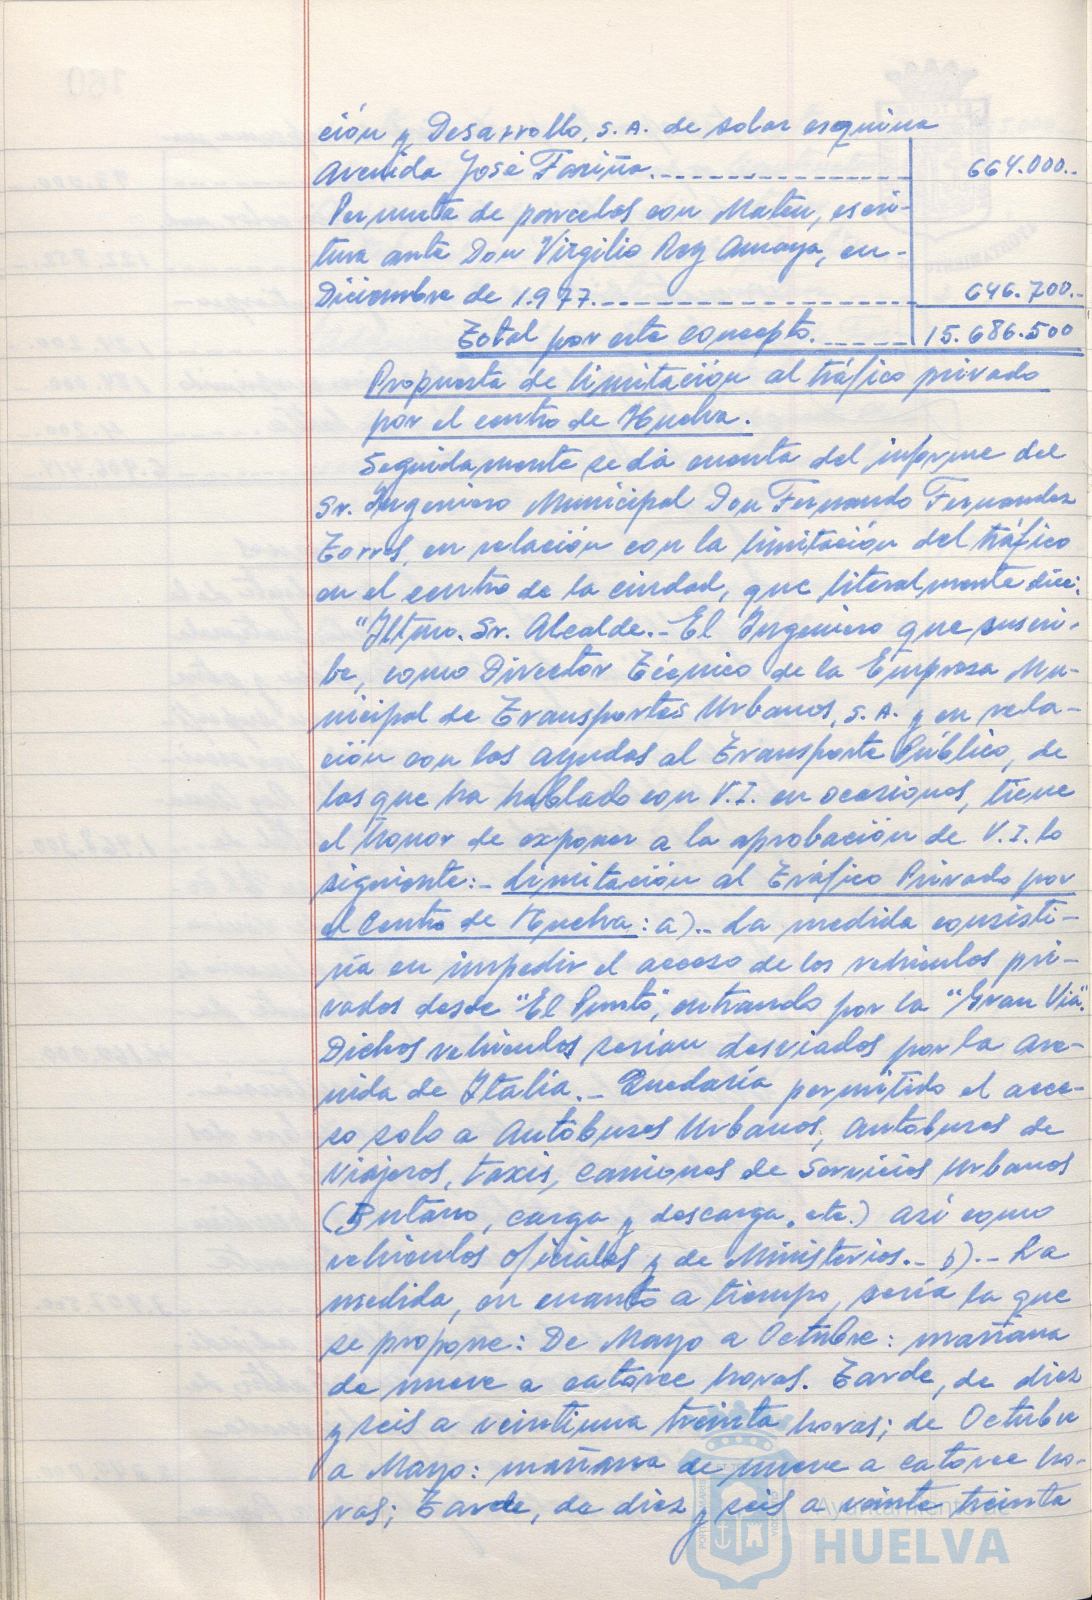 ción y Desarrollo, S.A. de solar esquina
Avenida José Fariña.------------------ 664.000.-
Permuta de parcelas con Mateu, escri-
tura ante Don Virgilio Rey Amaya, en-
Diciembre de 1.977.------------------ 646.700.-
Total por este concepto.------ 15.686.500
Propuesta de limitación al tráfico privado
por el centro de Huelva.
Seguidamente se dá cuenta del informe del
Sr. Ingeniero Municipal Don Fernando Fernandez
Torres, en relación con la limitación del tráfico
en el centro de la ciudad, que literalmente dice:
"Iltmo. Sr. Alcalde.- El Ingeniero que suscri-
be, como Director Técnico de la Empresa Mu-
nicipal de Transportes Urbanos, S.A. y en rela-
ción con las ayudas al Transporte Público, de
las que ha hablado con V.I. en ocasiones, tiene
el honor de exponer a la aprobación de V.I. lo
siguiente:- Limitación al Tráfico Privado por
el Centro de Huelva: a).- La medida consisti-
ría en impedir el acceso de los vehículos pri-
vados desde "El Punto", entrando por la "Gran Vía".
Dichos vehículos serian desviados por la Ave-
nida de Italia.- Quedaría permitido el acce-
so solo a Autobuses Urbanos, Autobuses de
Viajeros, taxis, camiones de Servicios Urbanos
(Butano, carga y descarga, etc.) así como
vehículos oficiales y de Ministerios.- b).- La
medida, en cuanto a tiempo, sería la que
se propone: De Mayo a Octubre: mañana
de nueve a catorce horas. Tarde, de diez
y seis a veintiuna treinta horas; de Octubre
a Mayo: mañana de nueve a catorce ho-
ras; Tarde, de diez y seis a veinte treinta
Ayuntamiento de
HUELVA